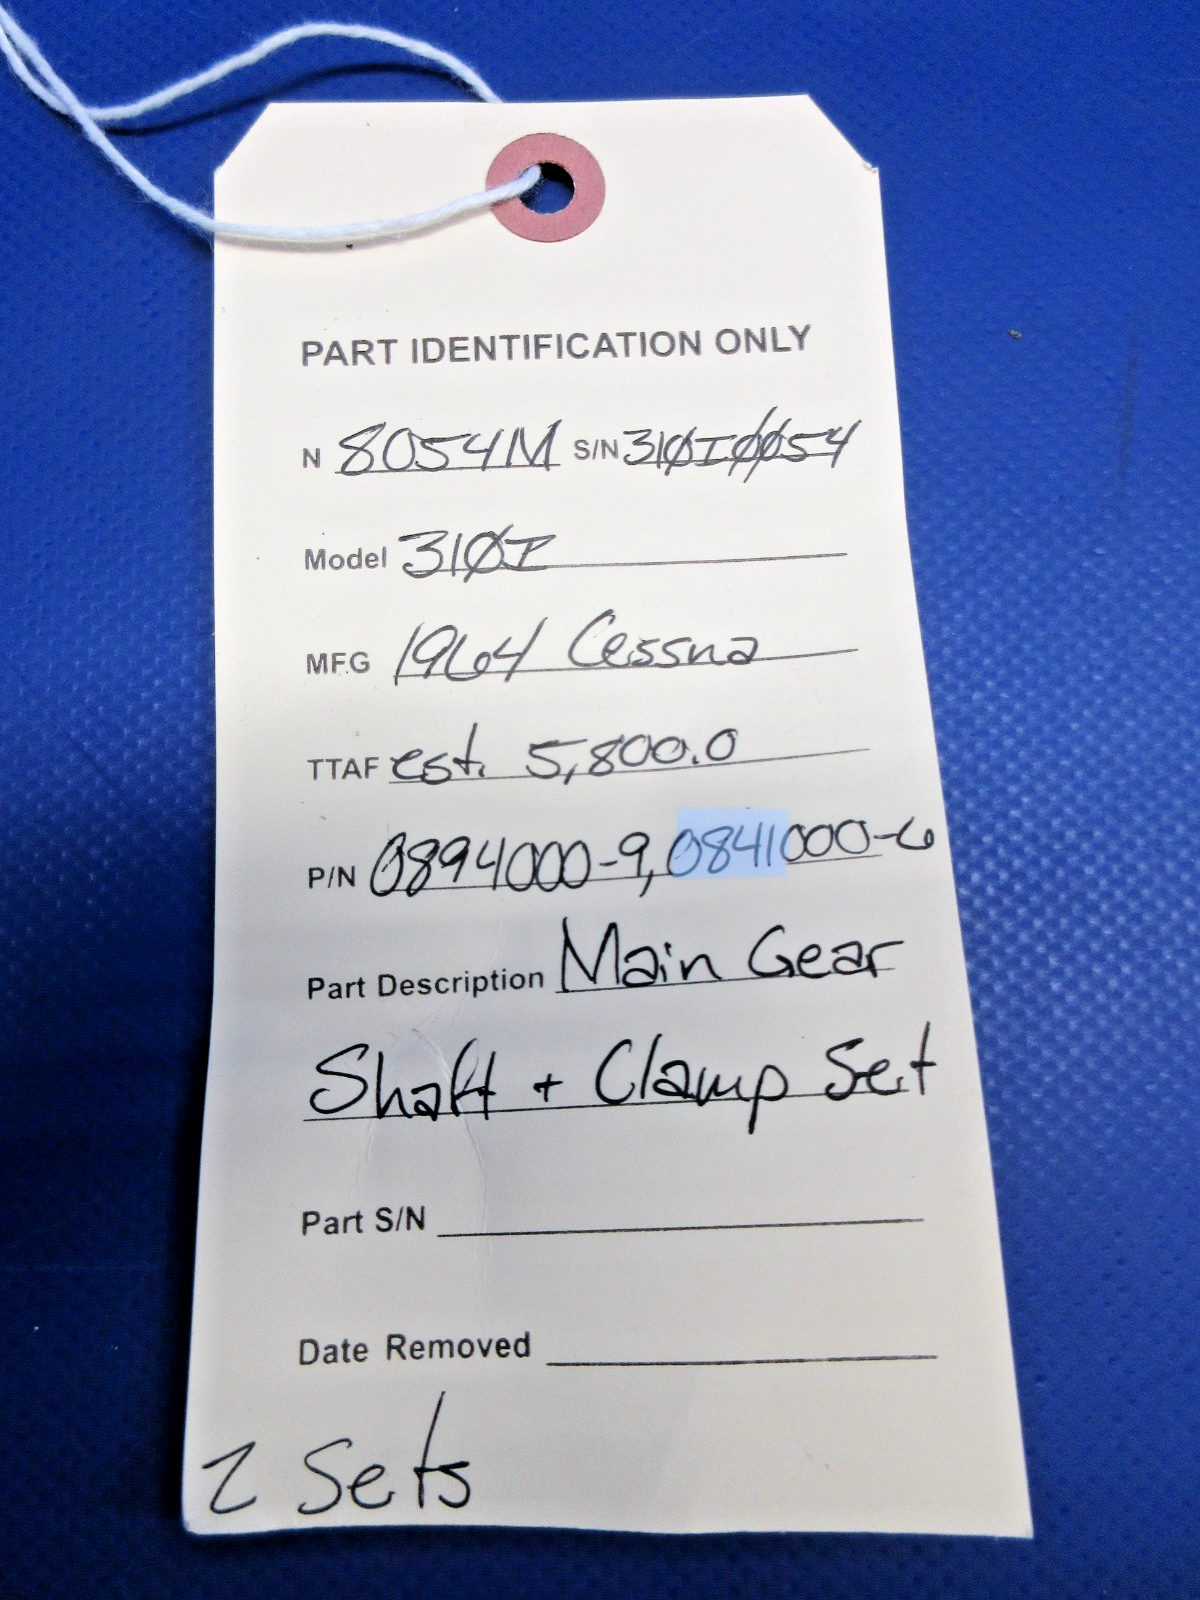 PART IDENTIFICATION ONLY
N 8054M S/N 310I0054
Model 310I
MFG 1964 Cessna
TTAF est. 5,800.0
P/N 0894000-9, 0841000-6
Part Description Main Gear
Shaft + Clamp Set
Part S/N
Date Removed
2 Sets